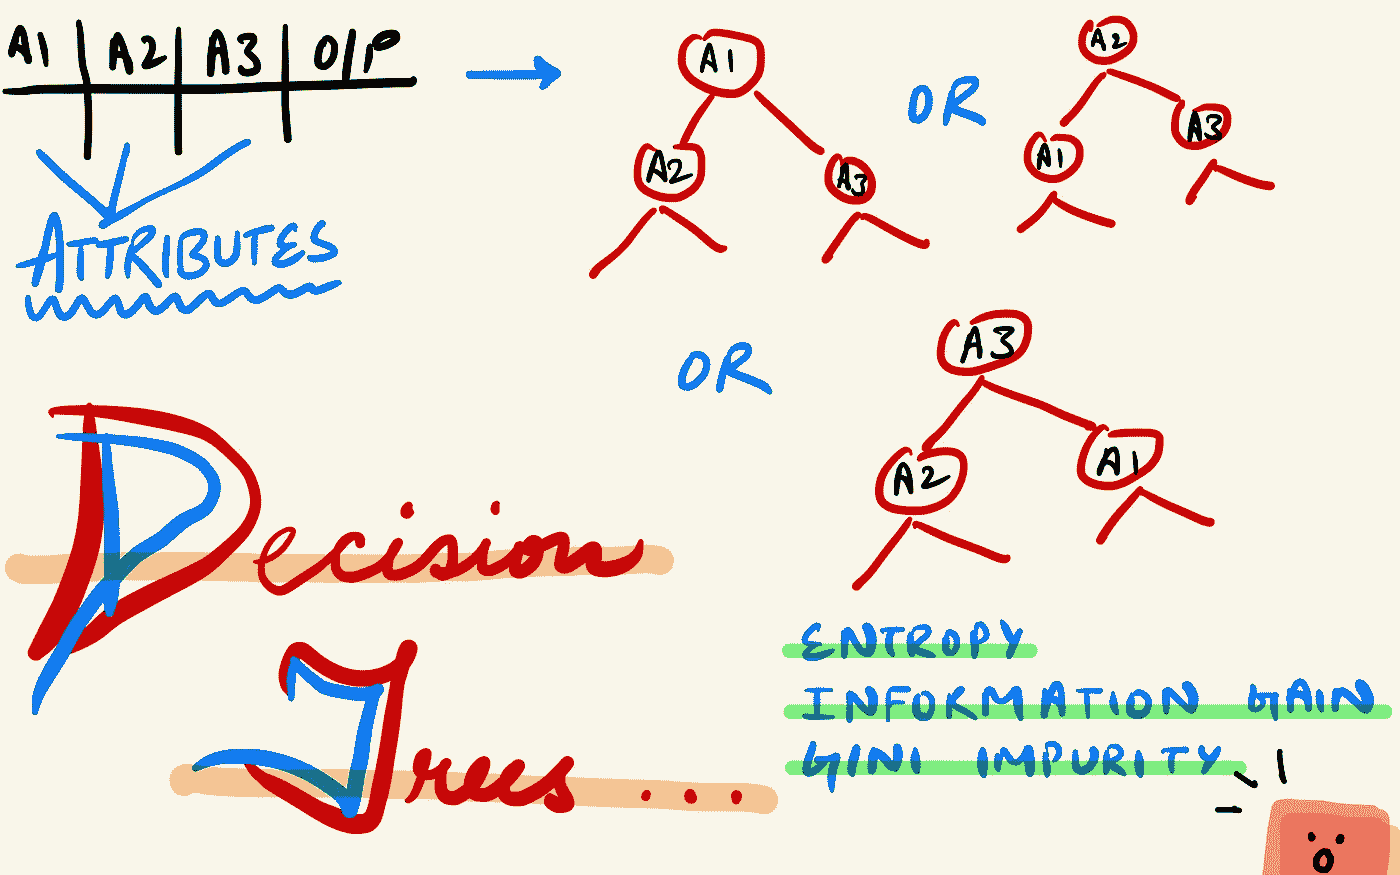 A1 A2 A3 O/P
ATTRIBUTES
A1
A2 A3
OR
A2
A1 A3
OR
A3
A2 A1
Decision
Trees ...
ENTROPY
INFORMATION GAIN
GINI IMPURITY